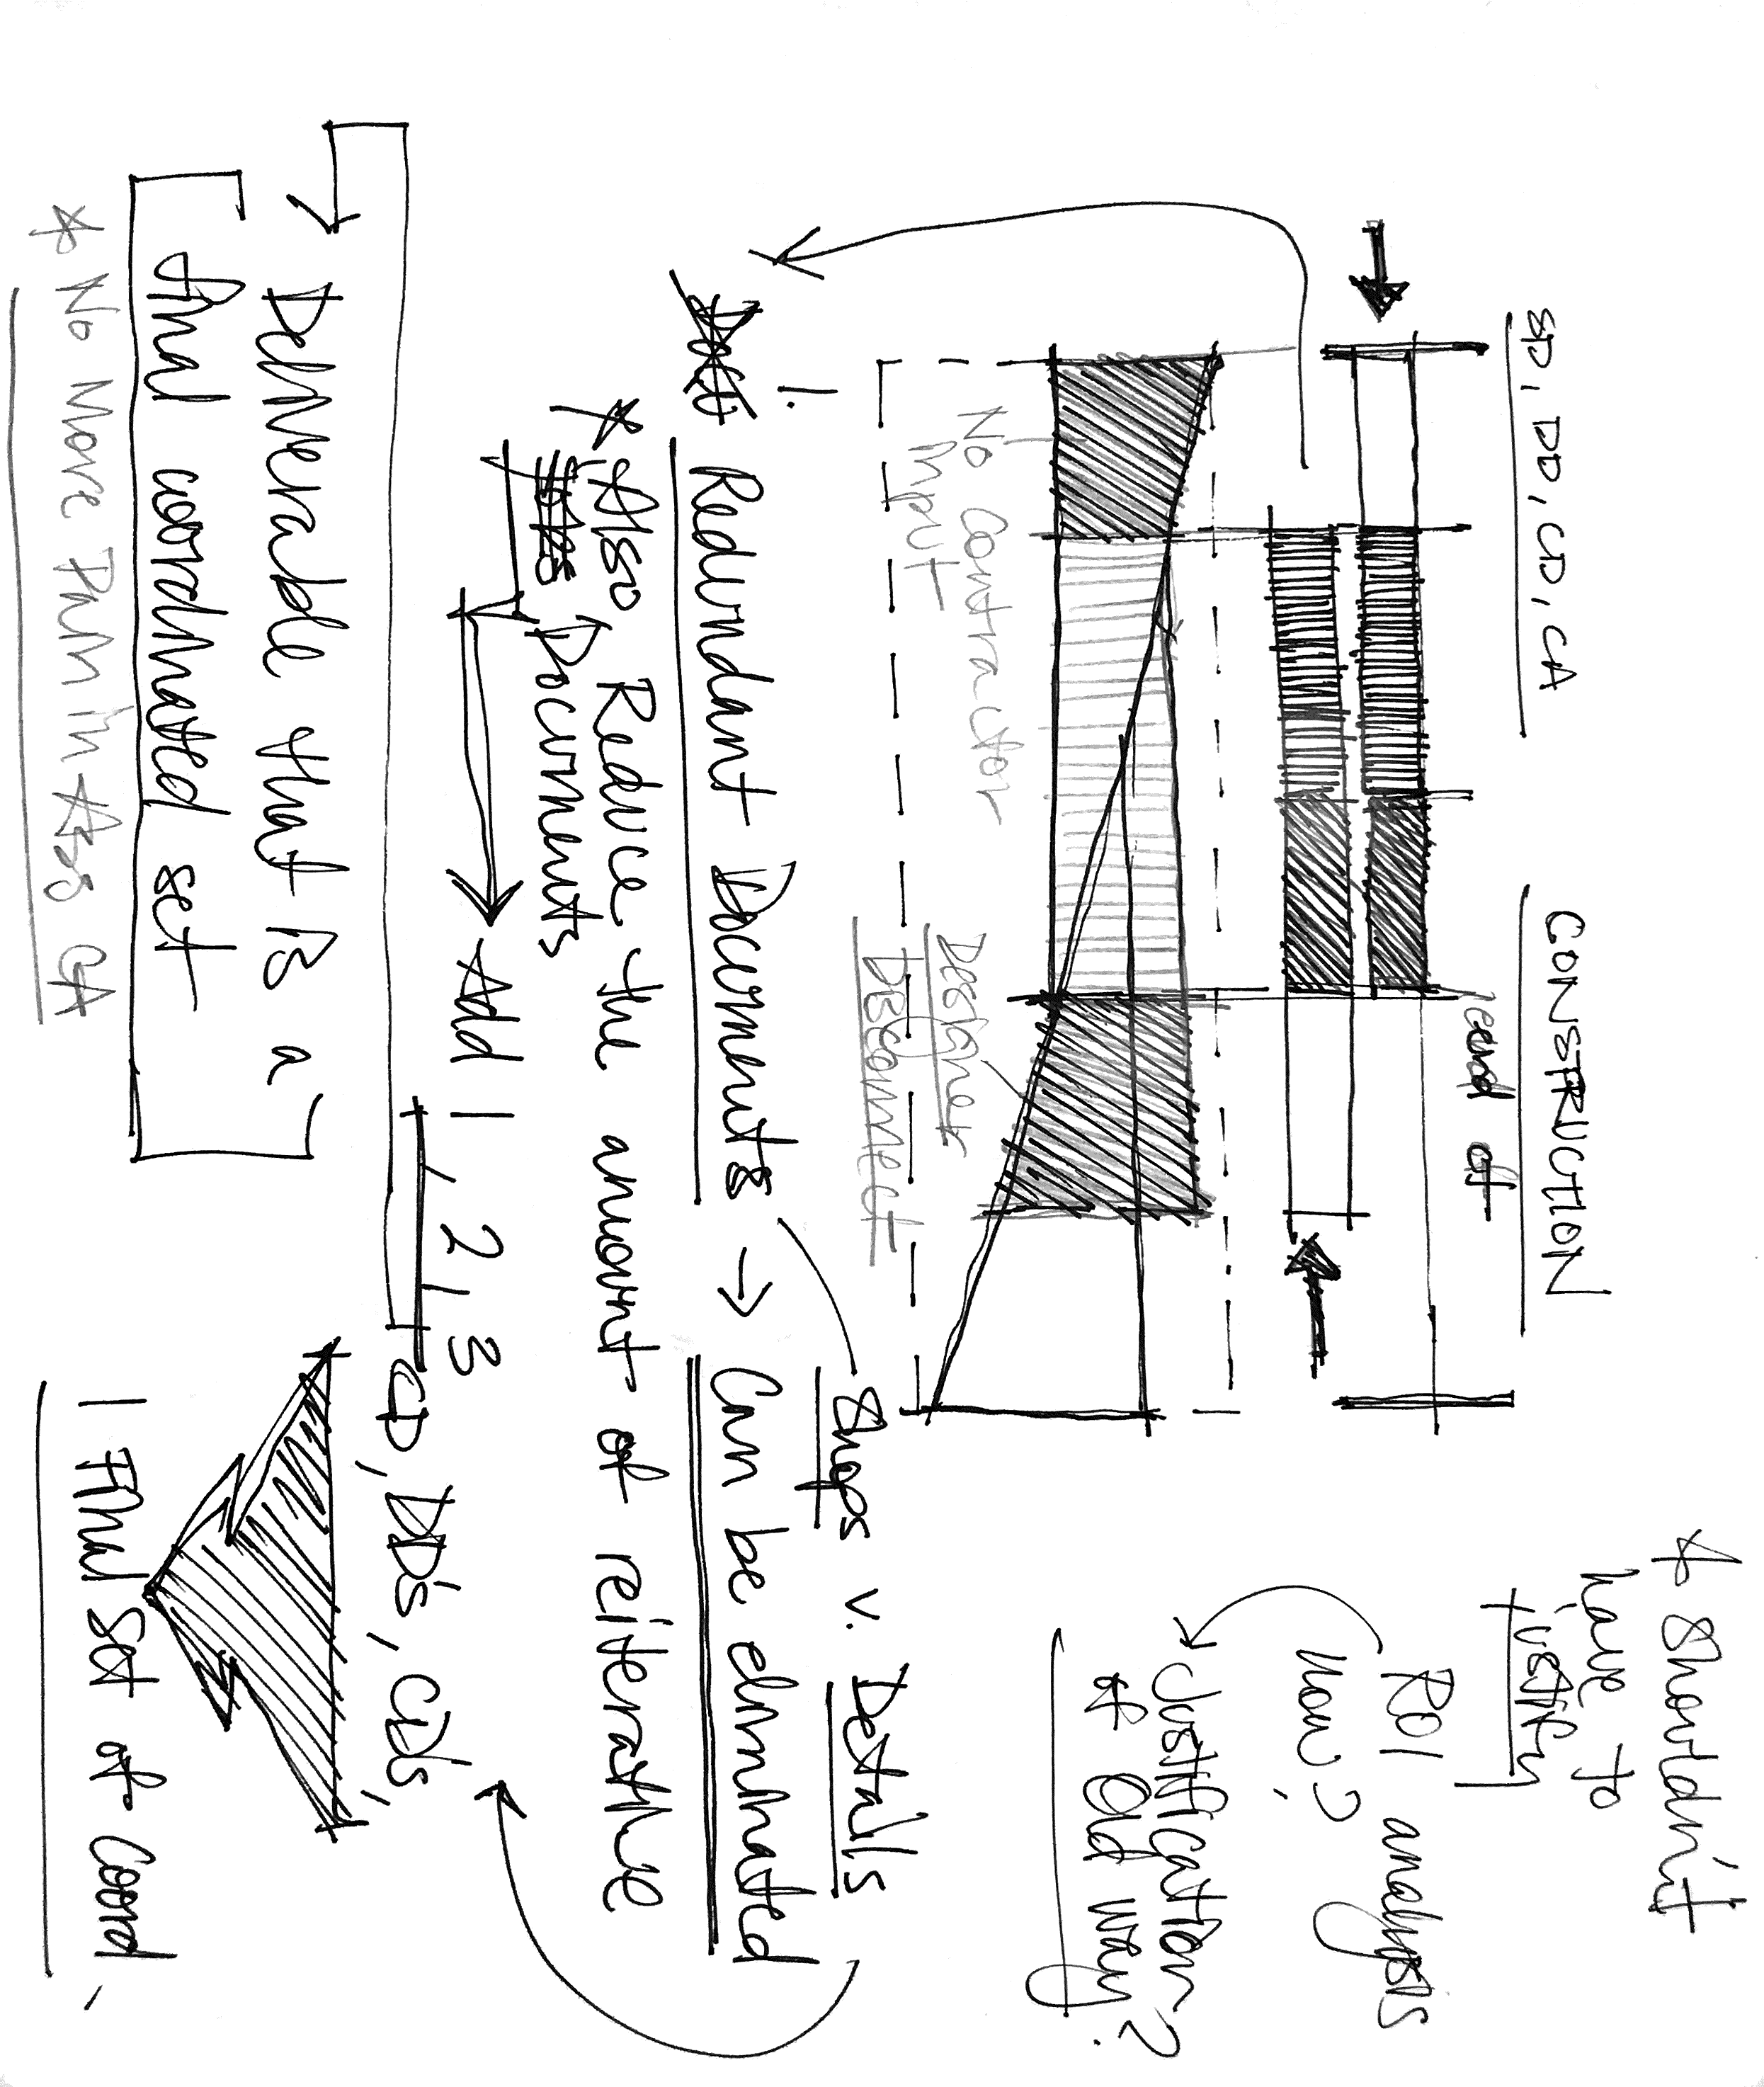 SD, DD, CD, CA
CONSTRUCTION
* Shouldn't
have to
justify
ROI analysis
now?
Justification
of old way?
No Contractor
Input
Designer
Disconnect
Shops v. Details
1.
Redundant Documents → Can be eliminated
* Also Reduce the amount of reiterative
Documents
Add 1, 2, 3 CD, DD's, CD's,
Deliverable that is a
final coordinated set
* No More Pain in Ass CA
1 Final Set of Coord.